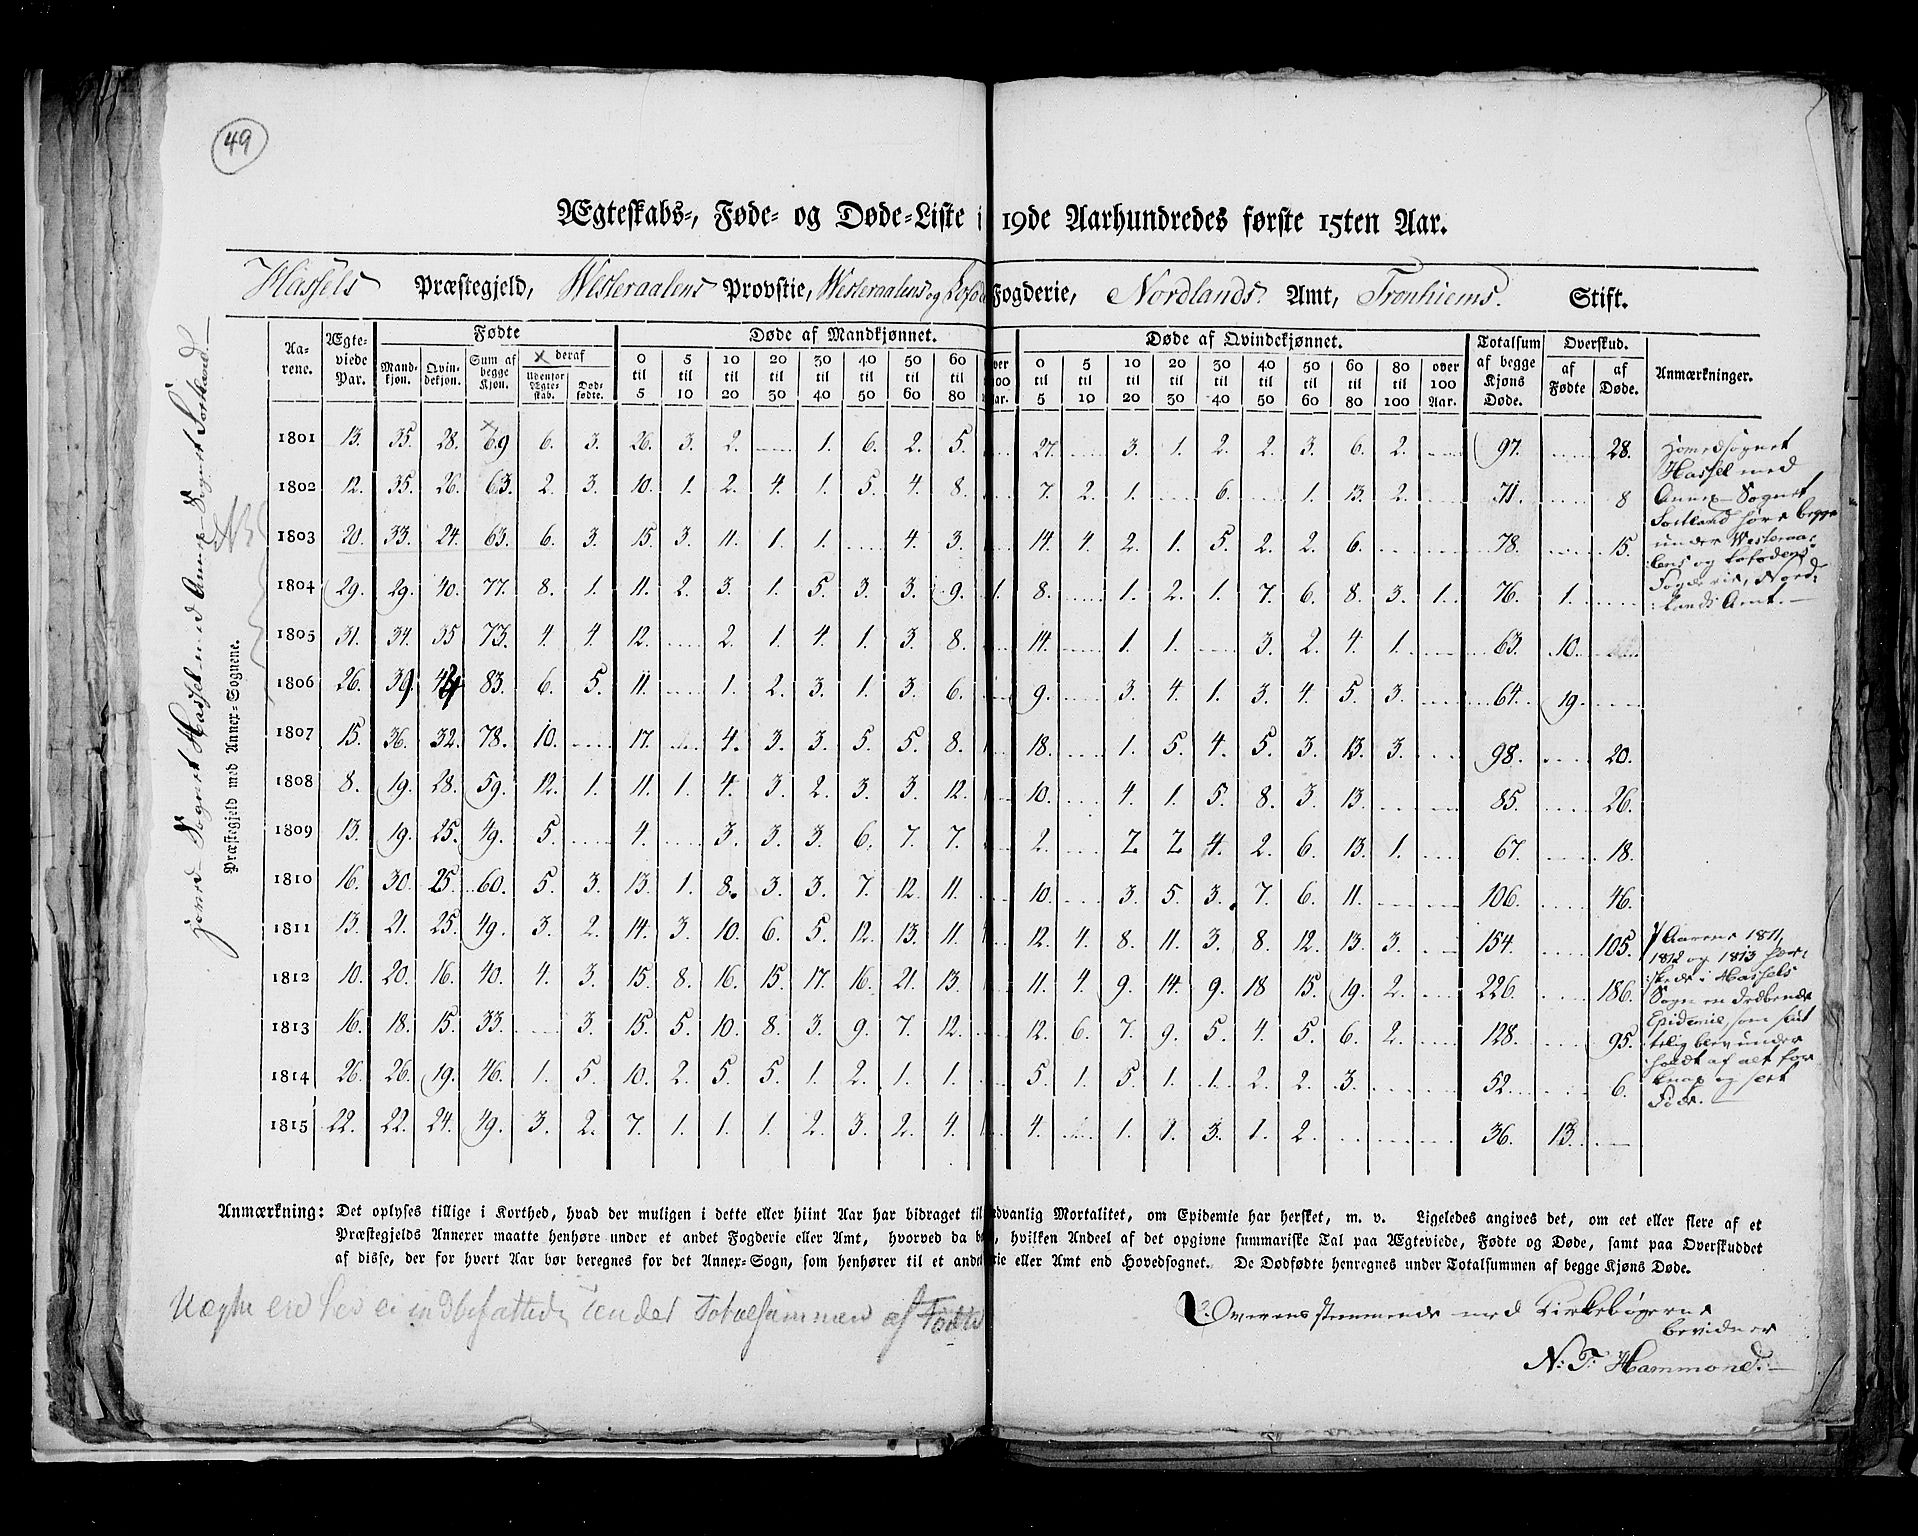 49
Ægteskabs-, Føde- og Døde-Liste i 19de Aarhundredes første 15ten Aar.
Hassels Præstegjeld, Westeraalens Provstie, Westeraalens og Lofod Fogderie, Nordlands Amt, Tronhiems Stift.
Hoved-Sognet Hassel med Annex-Sognet Sortland
Præstegjeld med Annex-Sognene.
NB
Aa-rene. Ægte-viede Par. Fødte Døde af Mandkjønnet. Døde af Qvindekjønnet. Totalsum af begge Kjøns Døde. Overskud. Anmærkninger.
Mand-kjøn. Qvin-dekjøn. Sum af begge Kjøn. X deraf Udenfor Ægte-skab. Død-fødte. 0 til 5 5 til 10 10 til 20 20 til 30 30 til 40 40 til 50 50 til 60 60 til 80 0 til 5 5 til 10 10 til 20 20 til 30 30 til 40 40 til 50 50 til 60 60 til 80 80 til 100 over 100 Aar. af Fødte af Døde.
1801 13. 35. 28. 69 6. 3. 26. 3. 2. ... 1. 6. 2. 5. 27. ... 3. 1. 2. 2. 3. 6. 2. ... 97. ... 28.
1802 12. 35. 26. 63. 2. 3. 10. 1. 2. 4. 1. 5. 4. 8. ... 7. 2. 1. ... 6. ... 1. 13. 2. ... 71. ... 8
1803 20. 33. 24. 63. 6. 3. 15. 3. 11. 1. 1. ... 4. 3. 14. 4. 2. 1. 5. 2. 2. 6. ... ... 78. ... 15.
1804 29. 29. 40. 77. 8. 1. 11. 2. 3. 1. 5. 3. 3. 9. 1. 8. ... 1. 2. 1. 7. 6. 8. 3. 1. 76. 1. ...
1805 31. 34. 35 73. 4. 4. 12. ... 2. 1. 4. 1. 3. 8. 14. ... 1. 1. ... 3. 2. 4. 1. ... 63. 10. ...
1806 26. 39 44 83. 6. 5. 11. ... 1. 2. 3. 1. 3. 6. 9. ... 3. 4. 1. 3. 4. 5. 3. ... 64. 19. ...
1807 15. 36. 32. 78. 10. ... 17. ... 4. 3. 3. 5. 5. 8. 18. ... 1. 5. 4. 5. 3. 13. 3. ... 98. ... 20.
1808 8. 19. 28. 59. 12. 1. 11. 1. 4. 3. 2. 3. 3. 12. 10. ... 4. 1. 5. 8. 3. 13. ... ... 85. ... 26.
1809 13. 19. 25. 49. 5. ... 4. ... 3. 3. 3. 6. 7. 7. 2. ... 2. 2. 4. 2. 6. 13. 1. ... 67. ... 18.
1810 16. 30. 25. 60. 5. 3. 13. 1. 8. 3. 3. 7. 12. 11. 10. ... 3. 5. 3. 7. 6. 11. ... ... 106. ... 46.
1811 13. 21. 25. 49. 3. 2. 14. 3. 10. 6. 5. 12. 13. 11. 12. 4. 8. 11. 3. 8. 12. 13. 3. ... 154. ... 105.
1812 10. 20. 16. 40. 4. 3. 15. 8. 16. 15. 17. 16. 21. 13. 11. 4. 9. 14. 9. 18 15. 19. 2. ... 226. ... 186.
1813 16. 18. 15. 33. ... 3. 15. 5. 10. 8. 3. 9. 7. 12. 12. 6. 7. 9. 5. 4. 5. 6. 2. ... 128. ... 95.
1814 26. 26. 19. 46. 1. 5. 10. 2. 5. 5. 1. 2. 1. 1. 5. 1. 5. 1. 1. 2. 2. 3. ... ... 52. ... 6.
1815 22. 22. 24. 49. 3. 2. 7. 1. 1. 1. 2. 3. 2. 4. 4. ... 1. 1. 3. 1. 2. ... ... ... 36. 13. ...
Hovedsognet
Hassel med
Annex-Sognet
Sortland høre begge
under Westeraa-
lens og Lofodens
Fogderie, Nord-
lands Amt.
I Aarene 1811,
1812 og 1813 her-
skede i Hassels
Sogn en dræbende
Epidemie, som
blev under
holdt af
knap og slet
Føde.
Anmærkning: Det oplyses tillige i Korthed, hvad der muligen i dette eller hiint Aar har bidraget til dvanlig Mortalitet, om Epidemie har hersket, m. v. Ligeledes angives det, om eet eller flere af et
Præstegjelds Annexer maatte henhøre under et andet Fogderie eller Amt, hvorved da b , hvilken Andeel af det opgivne summariske Tal paa Ægteviede, Fødte og Døde, samt paa Overskuddet
af disse, der for hvert Aar bør beregnes for det Annex-Sogn, som henhører til et and rie eller Amt end Hovedsognet. De Dødfødte henregnes under Totalsummen af begge Kjøns Døde.
Uægte ere her ei indbefattede under Totalsummen af Fødte
Overensstemmende med Kirkebøgerne
bevidner
N: T: Hammond.